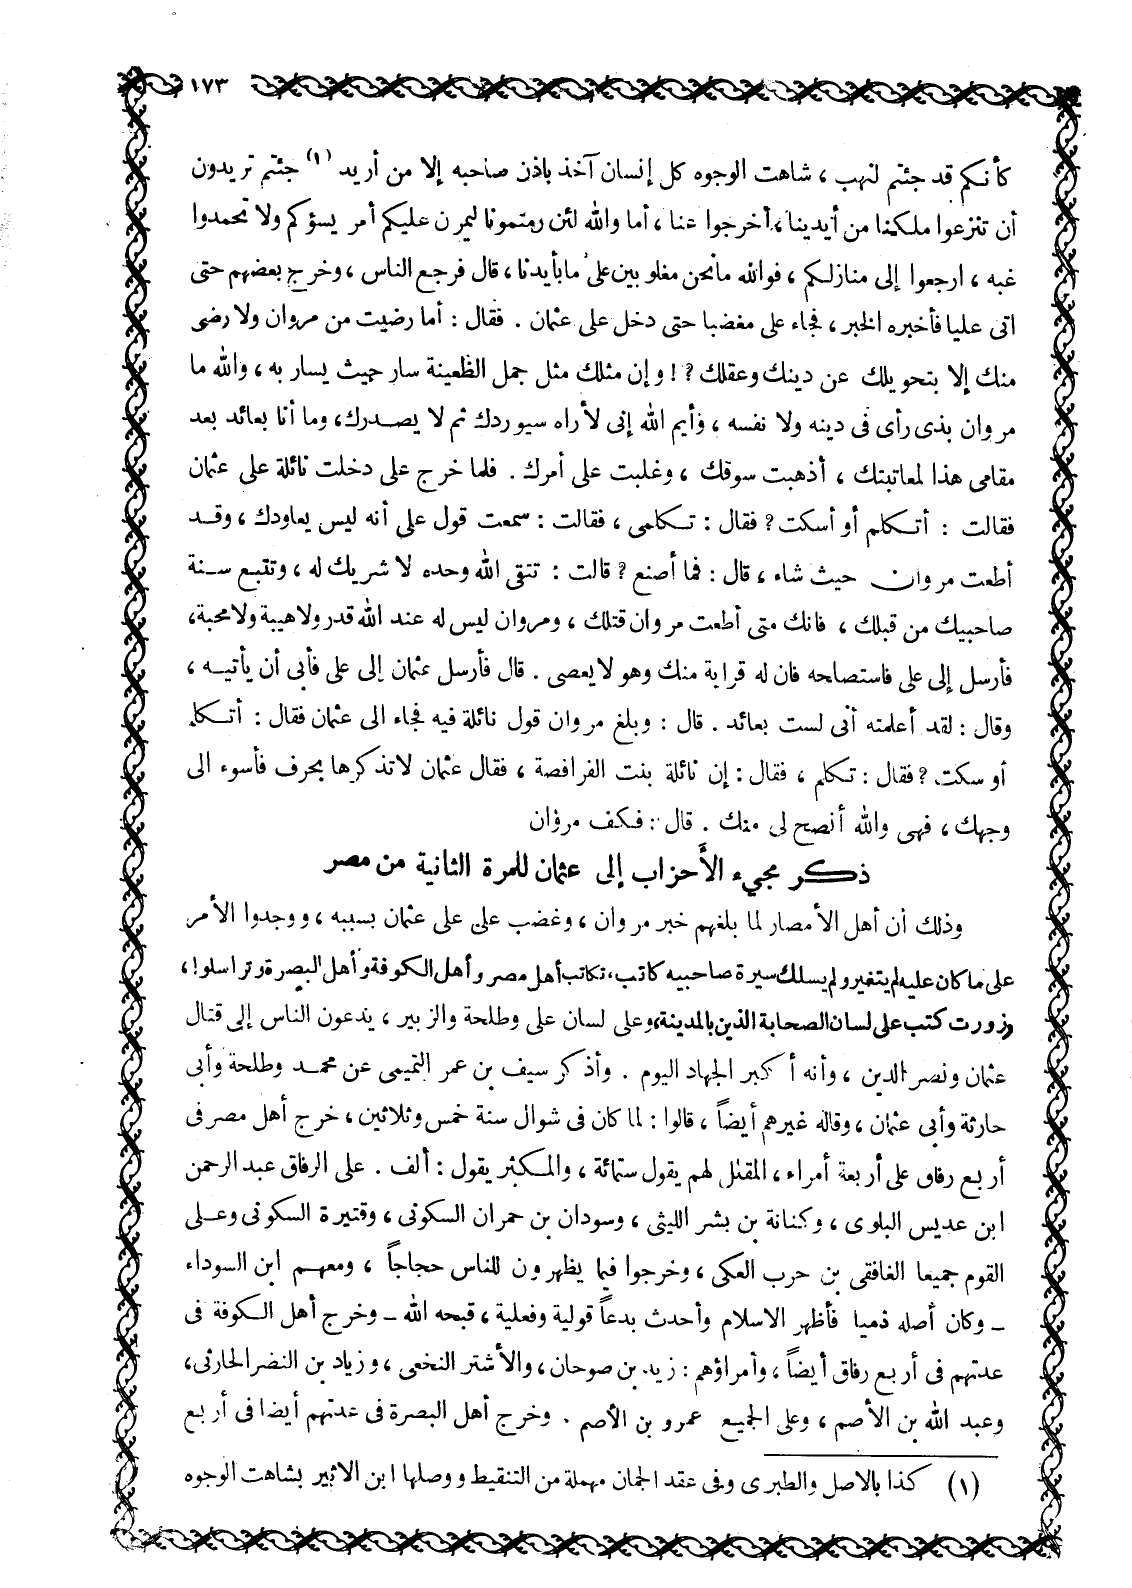 ١٧٣
كأنكم قد جئتم لنهب ، شاهت الوجوه كل إنسان آخذ باذن صاحبه إلا من أريد (١) جئتم تريدون
أن تنزعوا ملكنا من أيدينا، أخرجوا عنا ، أما والله لئن رمتمونا ليمرن عليكم أمر يسؤكم ولا تحمدوا
غبه ، ارجعوا إلى منازلكم ، فوالله مانحن مغلوبين على مابأيدنا ، قال فرجع الناس ، وخرج بعضهم حتى
اتى عليا فأخبره الخبر ، فجاء على مغضبا حتى دخل على عثمان . فقال : أما رضيت من مروان ولا رضى
منك إلا بتحويلك عن دينك وعقلك ? ! وإن مثلك مثل جمل الظعينة سار حيث يسار به ، والله ما
مروان بذى رأى فى دينه ولا نفسه ، وأيم الله إنى لأراه سيوردك ثم لا يصدرك، وما أنا بعائد بعد
مقامى هذا لمعاتبتك ، أذهبت سوقك ، وغلبت على أمرك . فلما خرج على دخلت نائلة على عثمان
فقالت : أتكلم أو أسكت ? فقال : تكلمى ، فقالت : سمعت قول على أنه ليس يعاودك ، وقد
أطعت مروان حيث شاء ، قال : فما أصنع ? قالت : تتقى الله وحده لا شريك له ، وتتبع سنة
صاحبيك من قبلك ، فانك متى أطعت مروان قتلك ، ومروان ليس له عند الله قدر ولا هيبة ولا محبة،
فأرسل إلى على فاستصلحه فان له قرابة منك وهو لا يعصى . قال فأرسل عثمان إلى على فأبى أن يأتيه ،
وقال : لقد أعلمته أنى لست بعائد . قال : وبلغ مروان قول نائلة فيه فجاء الى عثمان فقال : أتكلم
أو سكت ? فقال : تكلم ، فقال : إن نائلة بنت الفرافصة ، فقال عثمان لا تذكرها بحرف فأسوء الى
وجهك ، فهى والله أنصح لى منك . قال : فكف مروان
ذكر مجيء الأحزاب إلى عثمان للمرة الثانية من مصر
وذلك أن أهل الأمصار لما بلغهم خبر مروان ، وغضب على على عثمان بسببه ، ووجدوا الأمر
على ما كان عليه لم يتغير ولم يسلك سيرة صاحبيه كاتب ، تكاتب أهل مصر وأهل الكوفة وأهل البصرة وتراسلوا ،
وزورت كتب على لسان الصحابة الذين بالمدينة، وعلى لسان على وطلحة والزبير ، يدعون الناس إلى قتال
عثمان ونصر الدين ، وأنه أكبر الجهاد اليوم . وأذكر سيف بن عمر التميمى عن محمد وطلحة وأبى
حارثة وأبى عثمان ، وقاله غيرهم أيضاً ، قالوا : لما كان فى شوال سنة خمس وثلاثين ، خرج أهل مصر فى
أربع رفاق على أربعة أمراء ، المقلل لهم يقول ستمائة ، والمكثر يقول : ألف . على الرفاق عبد الرحمن
ابن عديس البلوى ، وكنانة بن بشر الليثى ، وسودان بن حمران السكونى ، وقتيرة السكونى وعلى
القوم جميعا الغافقى بن حرب العكى ، وخرجوا فيما يظهرون للناس حجاجاً ، ومعهم ابن السوداء
ـ وكان أصله ذميا فأظهر الاسلام وأحدث بدعاً قولية وفعلية ، قبحه الله ـ وخرج أهل الكوفة فى
عدتهم فى أربع رفاق أيضاً ، وأمراؤهم : زيد بن صوحان ، والأشتر النخعى ، وزياد بن النضر الحارثى،
وعبد الله بن الأصم ، وعلى الجميع عمرو بن الأصم . وخرج أهل البصرة فى عدتهم أيضا فى أربع
(١) كذا بالاصل والطبرى وفى عقد الجمان مهملة من التنقيط ووصلها ابن الاثير بشاهت الوجوه